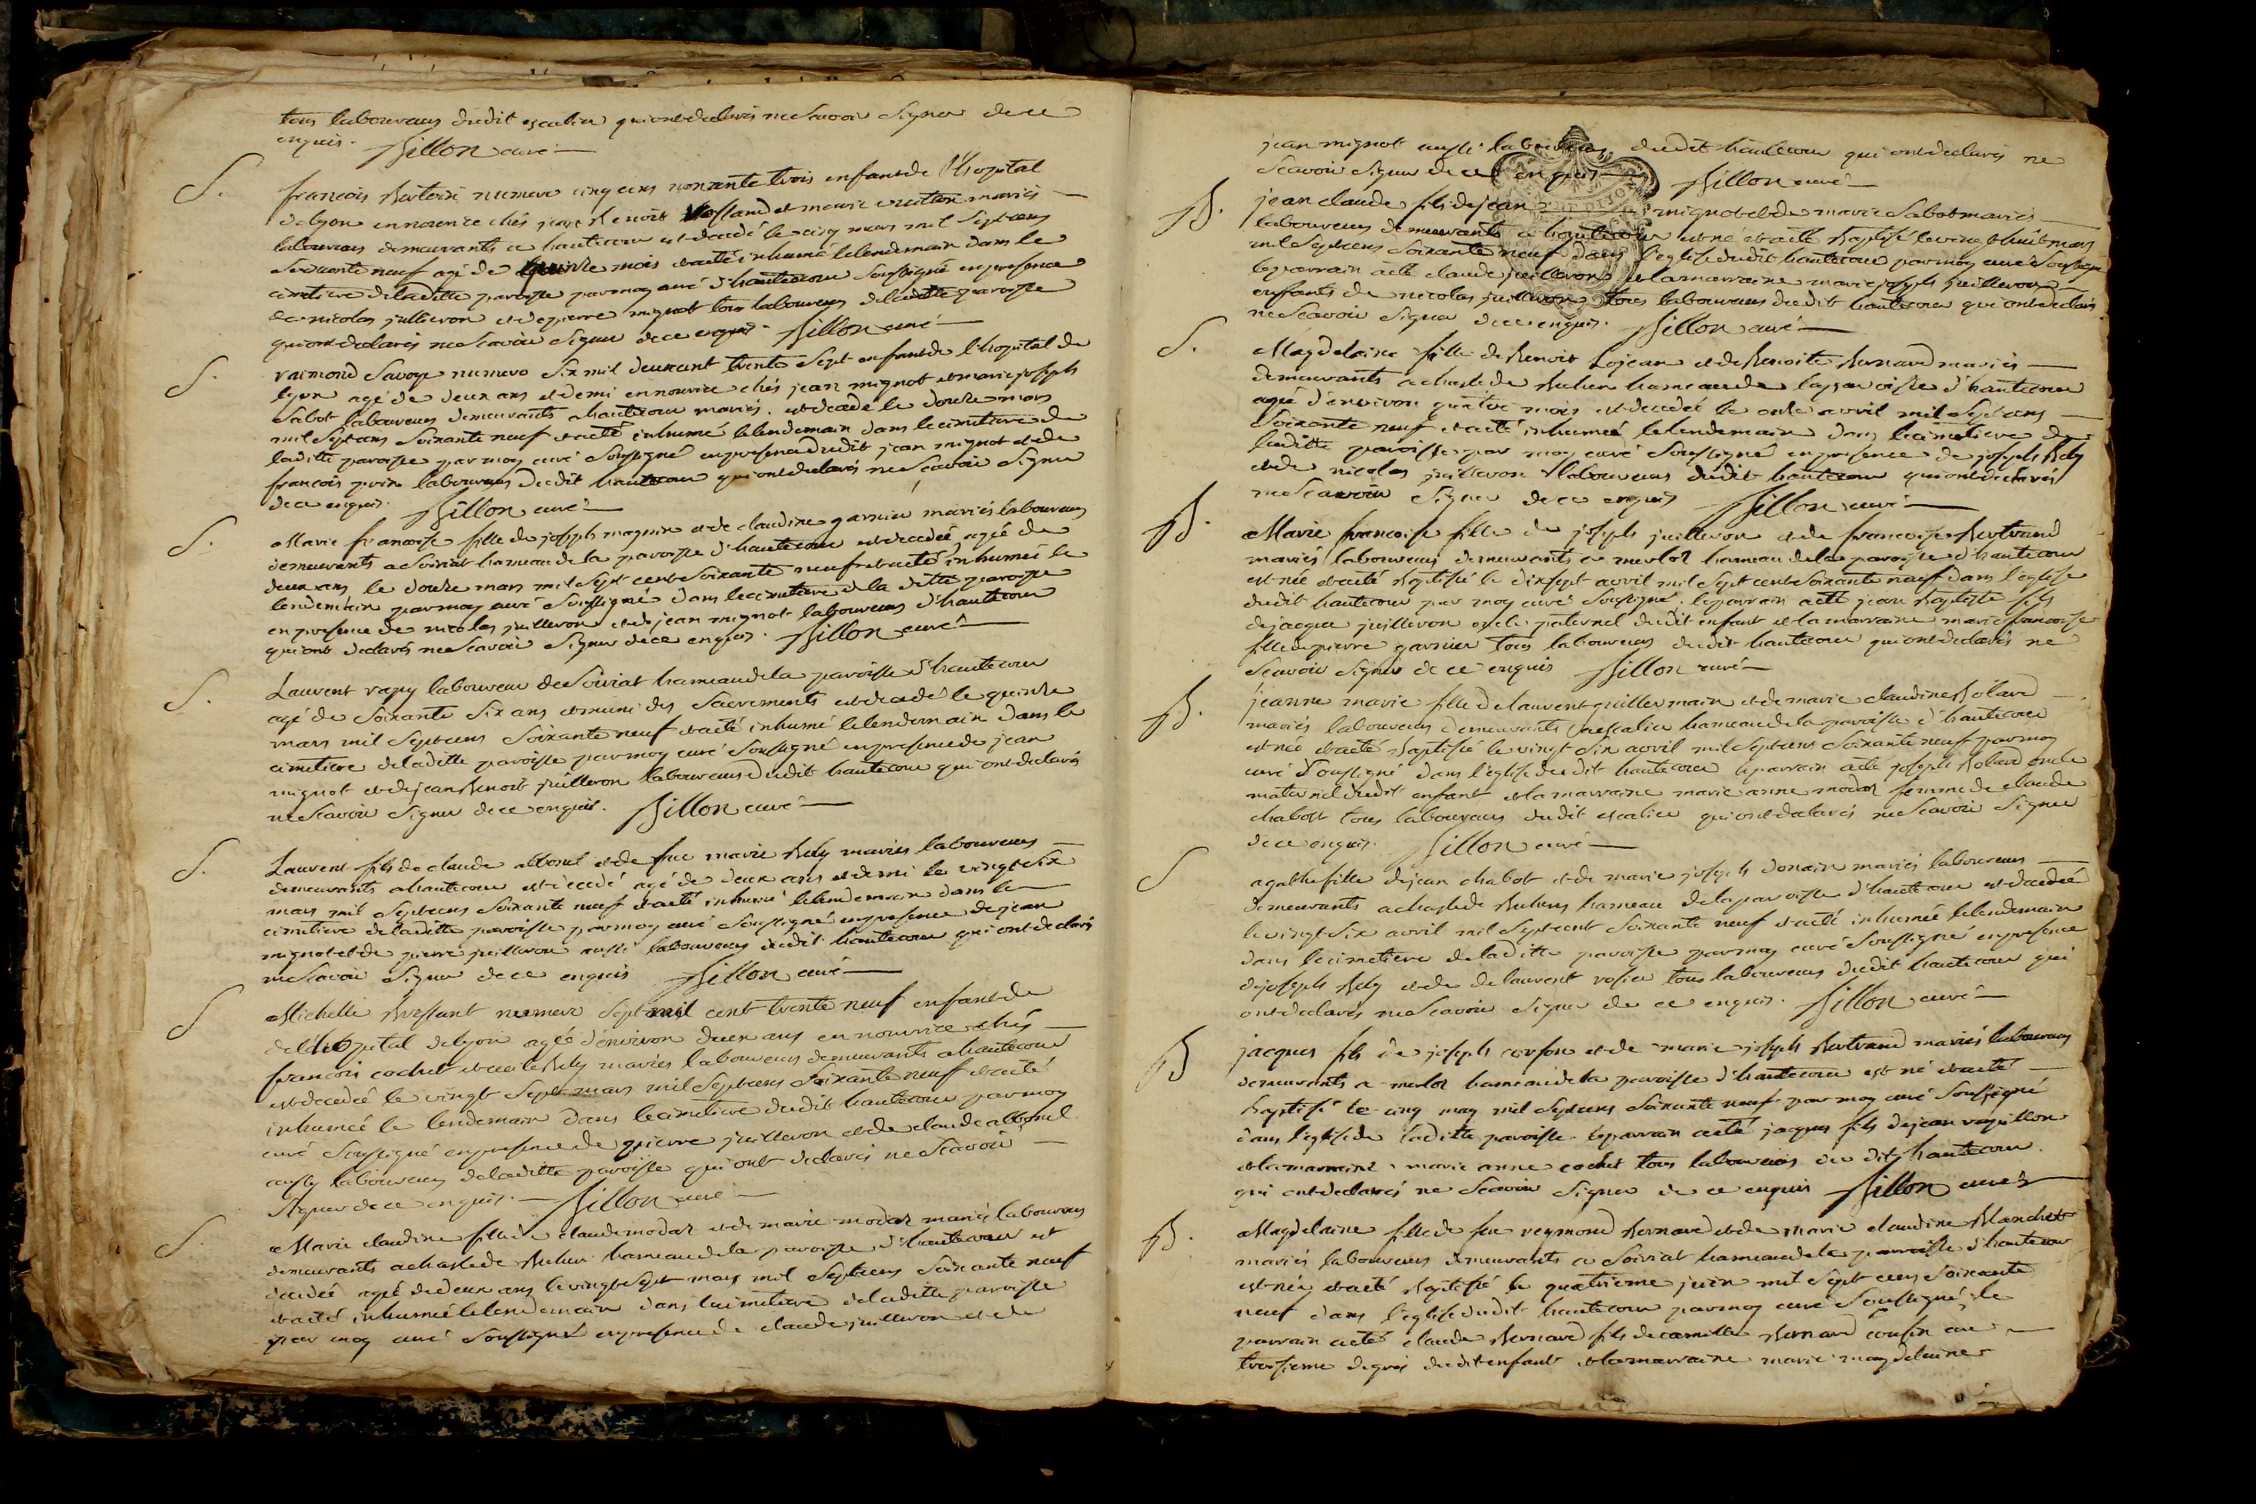 tous laboureurs dudit escalier qui ont declarés ne scavoir signer de ce
enquis. Billon curé
S. francois numero cinq cens nonente trois enfant de l'hopital
de lyon en nourrice chés jean Benoit et marie mariés
laboureurs demeurants a hautecour est decedé le cinq mars mil septcens
soixante neuf agé de quinze mois et a eté inhumé le lendemain dans le
cimetiere de laditte paroisse par moy curé d'hautecour soussigné en presence
de nicolas juilleron et de pierre mignot tous laboureurs de laditte paroisse
qui ont declarés ne scavoir signer de ce enquis. Billon curé
S. raimond Savoye numero six mil deux cent trente sept enfant de l'hopital de
lyon agé de deux ans et demi en nourrice chés jean mignot et marie joseph
Sabot laboureurs demeurants a hautecour mariés. est decedé le douze mars
mil septcens soixante neuf et a eté inhumé le lendemain dans le cimetiere de
laditte paroisse par moy curé soussigné en presence dudit jean mignot et de
francois laboureurs dudit hautecour qui ont declarés ne scavoir signer
de ce enquis. Billon curé
S. Marie francoise fille de joseph magnin et de claudine garnier mariés laboureurs
demeurants a soiriat hameau de la paroisse d'hautecour est decedée agée de
deux ans le douze mars mil sept cent soixante neuf et a eté inhumée le
lendemain par moy curé soussigné dans le cimetiere de la ditte paroisse
en presence de nicolas juilleron et de jean mignot laboureurs d'hautecour
qui ont declarés ne scavoir signer de ce enquis. Billon curé
S. Laurent rapy laboureur de Soiriat hameau de la paroisse d'hautecour
agé de soixante six ans et muni des sacrements est decedé le quinze
mars mil septcens soixante neuf et a eté inhumé le lendemain dans le
cimetiere de laditte paroisse par moy curé soussigné en presence de jean
mignot et de jean Benoit juilleron laboureurs dudit hautecour qui ont declarés
ne scavoir signer de ce enquis. Billon curé
S. Laurent fils de claude abbonel et de feue marie Bely mariés laboureurs
demeurants a hautecour est decedé agé de deux ans et demi le vingt six
mars mil septcens soixante neuf et a eté inhumé le lendemain dans le
cimetiere de laditte paroisse par moy curé soussigné en presence de jean
mignot et de pierre juilleron aussi laboureurs dudit hautecour qui ont declarés
ne scavoir signer de ce enquis Billon curé
S Michelle Bressant numero sept mil cent trente neuf enfant de
de l'hopital de lyon agée d'environ deux ans en nourrice chés
francois cochet et Bely mariés laboureurs demeurants a hautecour
est decedée le vingt sept mars mil septcens soixante neuf et a eté
inhumée le lendemain dans le cimetiere dudit hautecour par moy
curé soussigné en presence de pierre juilleron et de claude abbonel
aussy laboureurs de laditte paroisse qui ont declarés ne scavoir
signer de ce enquis. Billon curé
S. Marie claudine fille de claude modas et de marie modas mariés laboureurs
demeurants a chasle de Buhen hameau de la paroisse d'hautecour est
decedée agée de deux ans le vingt sept mars mil septcens soixante neuf
et a eté inhumée le lendemain dans le cimetiere de laditte paroisse
par moy curé soussigné en presence de claude juilleron et de
jean mignot aussi laboureurs dudit hautecour qui ont declarés ne
scavoir signer de ce enquis Billon curé
B. jean claude fils de jean mignot et de marie Sabot mariés
laboureurs demeurants a hautecour est né et a eté baptisé le vingt huit mars
mil septcens soixante neuf dans l'eglise dudit hautecour par moy curé soussigné
le parrain a eté claude juilleron et la marraine marie joseph juilleron
enfants de nicolas juilleron tous laboureurs dudit hautecour qui ont declarés
ne scavoir signer de ce enquis. Billon curé
S. Magdelaine fille de Benoit Lojean et de Benoite Bernard mariés
demeurants a chasle de Buhen hameau de la paroisse d'hautecour
agée d'environ quatre mois est decedée le onze avril mil septcens
soixante neuf et a eté inhumée le lendemain dans le cimetiere de
laditte paroisse par moy curé soussigné en presence de joseph Bely
et de nicolas juilleron laboureurs dudit hautecour qui ont declarés
ne scavoir signer de ce enquis Billon curé
B. Marie francoise fille de joseph juilleron et de francoise Bertrand
mariés laboureurs demeurants a merloz hameau de la paroisse d'hautecour
est née et a eté baptisée le dixsept avril mil sept cent soixante neuf dans l'eglise
dudit hautecour par moy curé soussigné. le parrain a eté jean baptiste fils
de jacque juilleron oncle paternel dudit enfant et la marraine marie francoise
fille de pierre garnier tous laboureurs dudit hautecour qui ont declarés ne
scavoir signer de ce enquis Billon curé
B. jeanne marie fille de laurent guillermain et de marie claudine Bolard
mariés laboureurs demeurants a escalier hameau de la paroisse d'hautecour
est née et a eté baptisée le vingt six avril mil septcens soixante neuf par moy
curé soussigné dans l'eglise dudit hautecour le parrain a eté joseph Bolard oncle
maternel dudit enfant et la marraine marie anne modas femme de claude
chabot tous laboureurs dudit escalier qui ont declarés ne scavoir signer
de ce enquis. Billon curé
S agathe fille de jean chabot et de marie joseph donain mariés laboureurs
demeurants a chasle de Buhen hameau de la paroisse d'hautecour est decedée
le vingt six avril mil septcent soixante neuf et a eté inhumée le lendemain
dans le cimetiere de laditte paroisse par moy curé soussigné en presence
de joseph Bely et de laurent rosier tous laboureurs dudit hautecour qui
ont declarés ne scavoir signer de ce enquis. Billon curé
B jacques fils de joseph et de marie joseph Bertrand mariés laboureurs
demeurants a merloz hameau de la paroisse d'hautecour est né et a eté
baptisé le cinq may mil septcens soixante neuf par moy curé soussigné
dans l'eglise de laditte paroisse. le parrain a eté jacques fils de jean
et la marraine marie anne cochet tous laboureurs du dit hautecour.
qui ont declarés ne scavoir signer de ce enquis Billon curé
B. Magdelaine fille de feu reymond Bernard et de marie claudine Blanchet
mariés laboureurs demeurants a Soiriat hameau de la paroisse d'hautecour
est née et a eté baptisée le quatrieme juin mil sept cens soixante
neuf dans l'eglise dudit hautecour par moy curé soussigné, le
parrain a eté claude Bernard fils de camille Bernard cousin au
troisieme degré dudit enfant et la marraine marie magdelaine